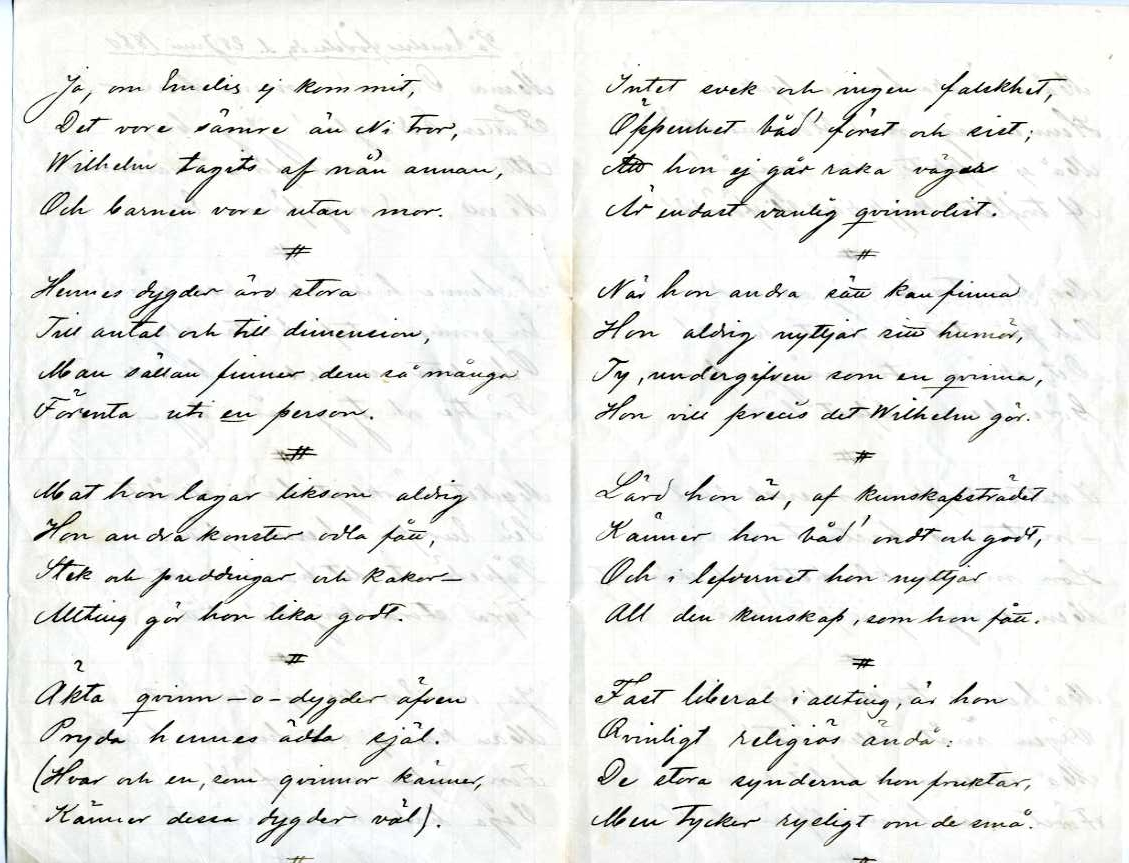 Ja, om Emelis ej kommit,
Det vore sämre än Ni tror,
Wilhelm tagits af nån annan,
Och barnen vore utan mor.
#
Hennes dygder äro stora
Till antal och till dimension,
Man sällan finner dem så många
Förenta uti en person.
#
Mat hon lagar liksom aldrig
Hon andra konster odla fått,
Stek och puddingar och kakor –
Allting gör hon lika godt.
#
Äkta qvinn-o-dygder äfven
Pryda hennes ädla själ.
(Hvar och en, som qvinnor känner,
Känner dessa dygder väl).
#
Intet svek och ingen falskhet,
Öppenhet båd' först och sist;
Att hon ej går raka vägar
Är endast vanlig qvinnolist.
#
När hon andra sätt kan finna
Hon aldrig nyttjar sitt humör,
Ty, undergifven som en qvinna,
Hon vill precis det Wilhelm gör.
#
Lärd hon är, af kunskapsträdet
Känner hon båd' ondt och godt,
Och i lefvernet hon nyttjar
All den kunskap, som hon fått.
#
Fast liberal i allting, är hon
Qvinligt religiös ändå:
De stora synderna hon fruktar,
Men tycker rysligt om de små.
#